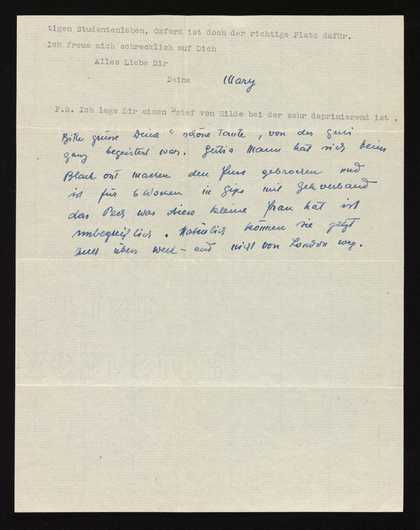 tigen Studentenleben. Oxford ist doch der richtige Platz dafür.
Ich freue mich schrecklich auf Dich
Alles Liebe Dir
Deine Mary
P.S. Ich lege Dir einen Brief von Hilde bei der sehr deprimierend ist .
Bitte grüsse Deine "schöne Tante", von der
ganz begeistert war. Mann hat sich beim
Black out machen den gebrochen und
ist für 6 Wochen in Gips mit Gehverband
das Pech was diese kleine Frau hat ist
unbegreiflich. Natürlich können sie jetzt
auch übers week-end nicht von London weg.